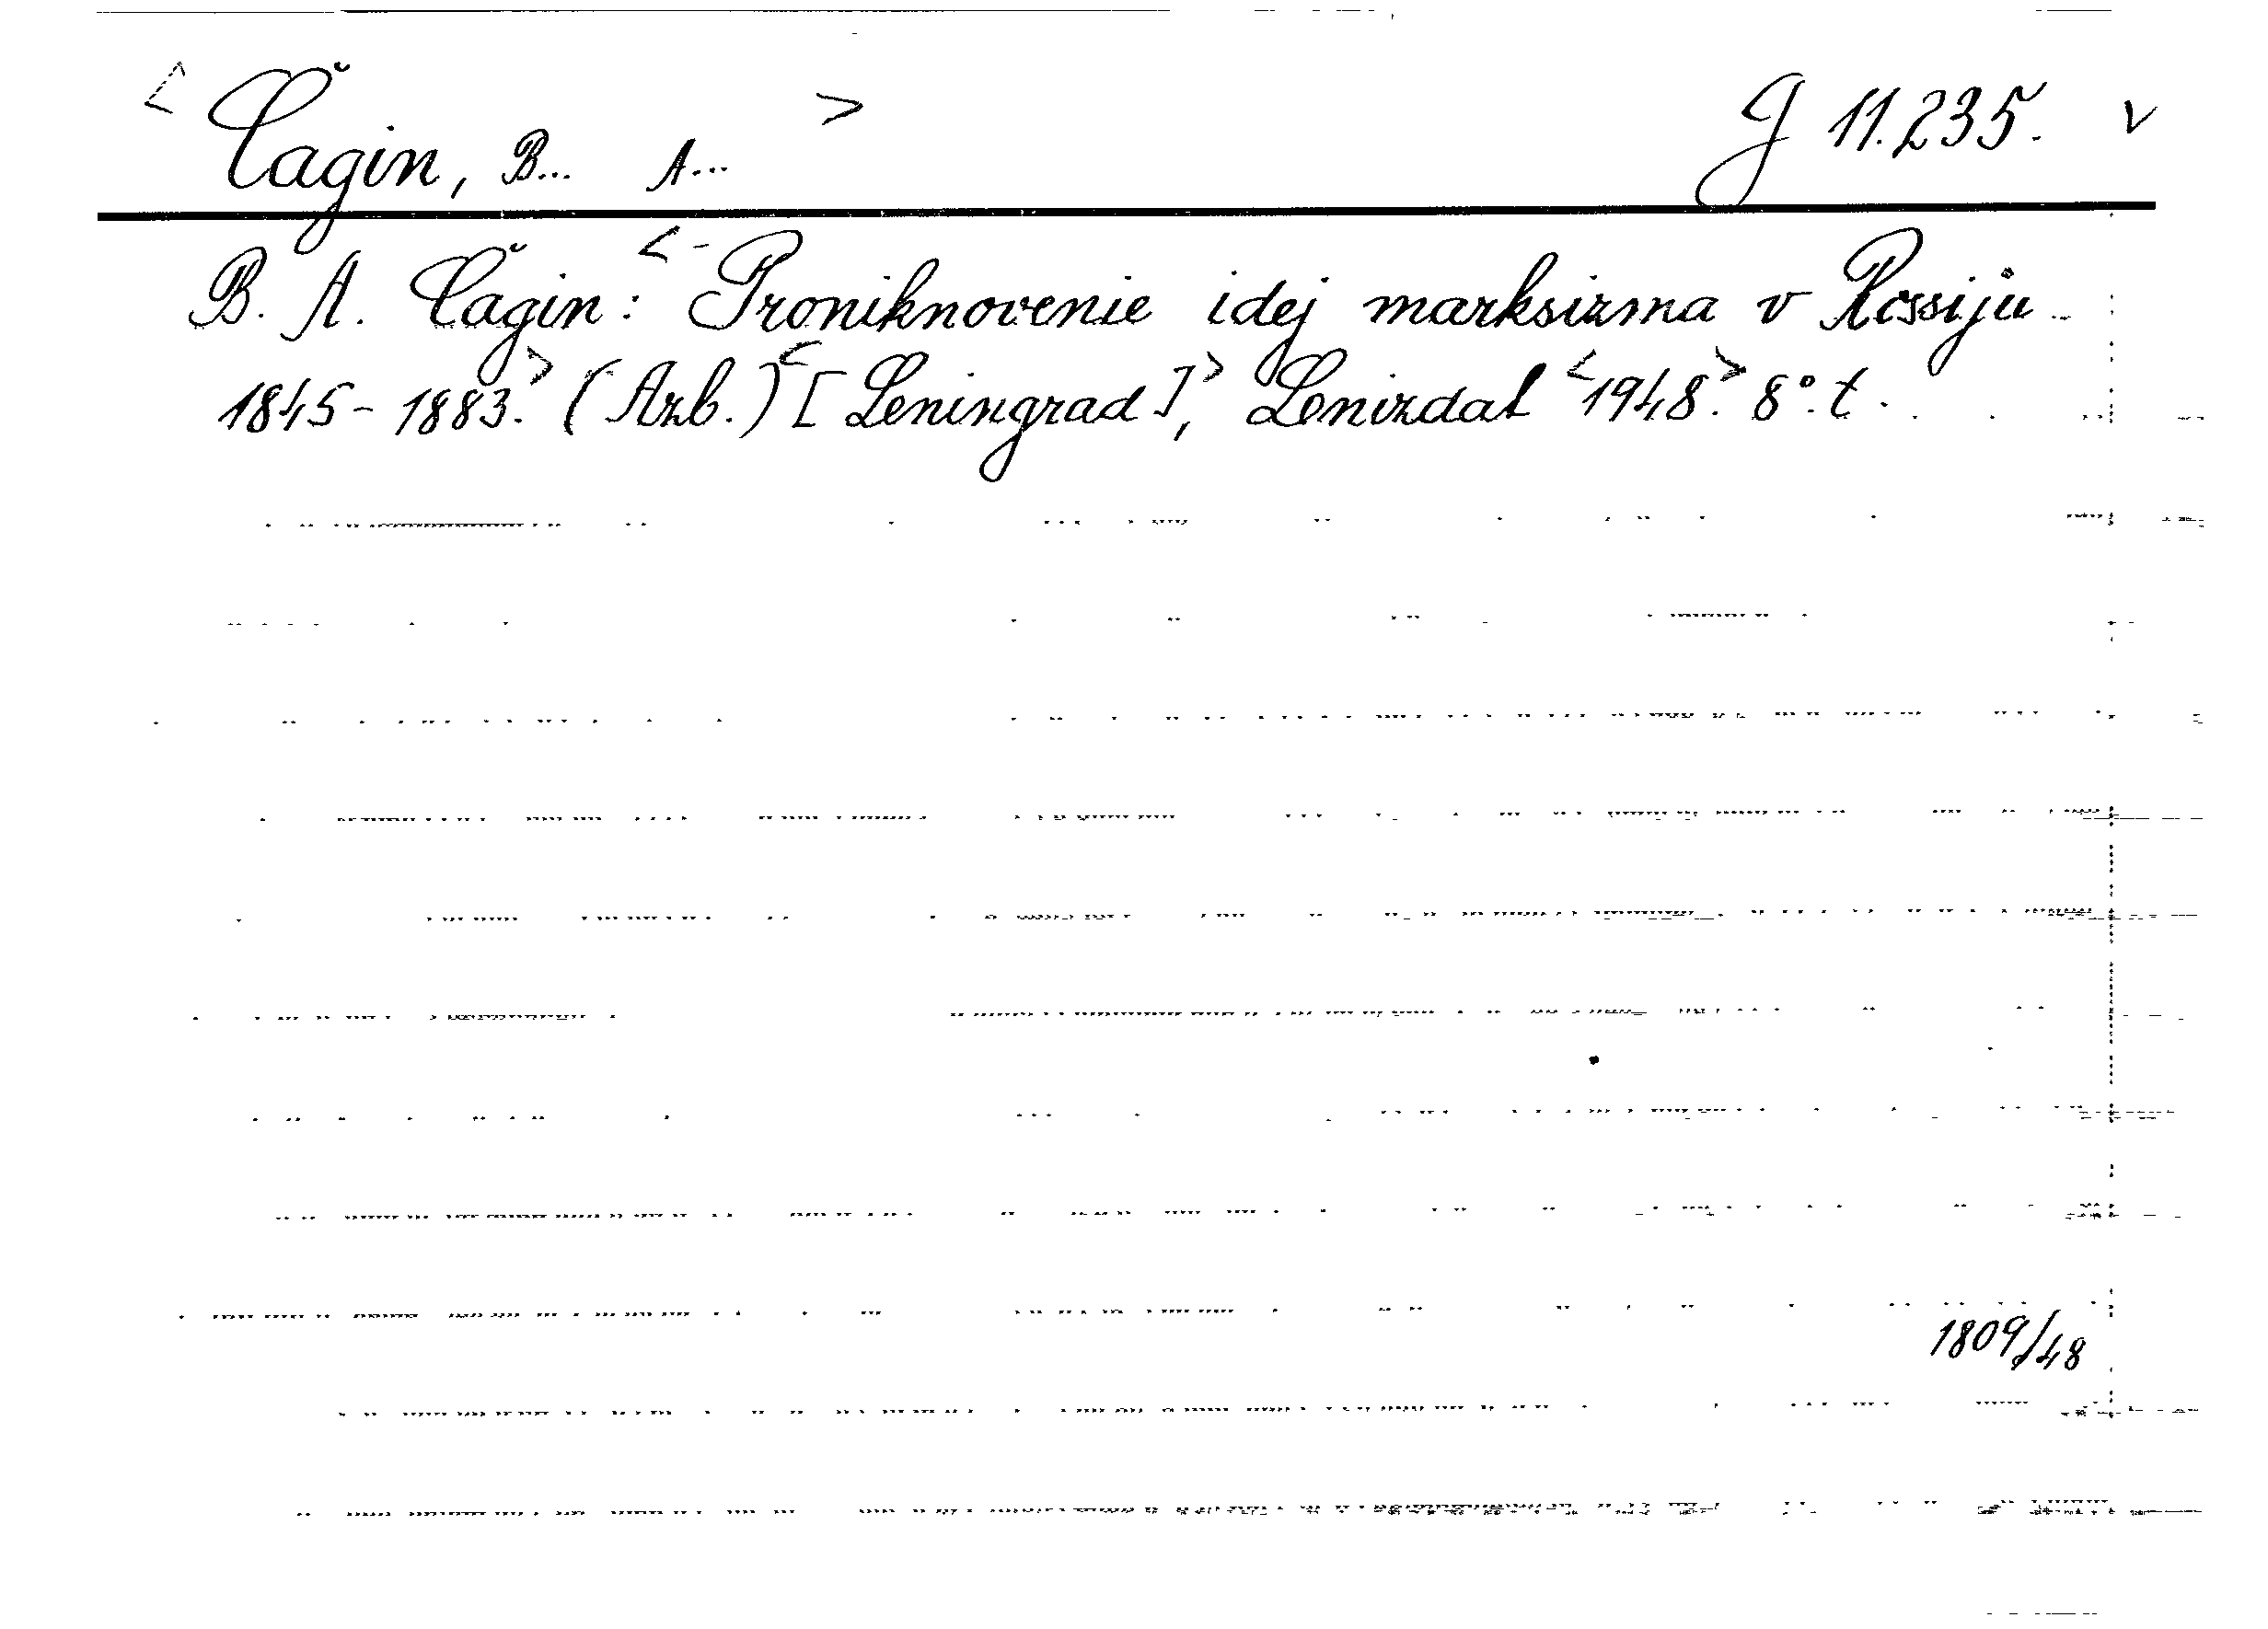 < Čagin, B... A... > J 11.235. v
B. A. Čagin: <Proniknovenie idej marksizma v Rossiju
1845-1883.> (Azb.) <[Leningrad],> Lenizdat <1948.> 8°. t.
1809/48